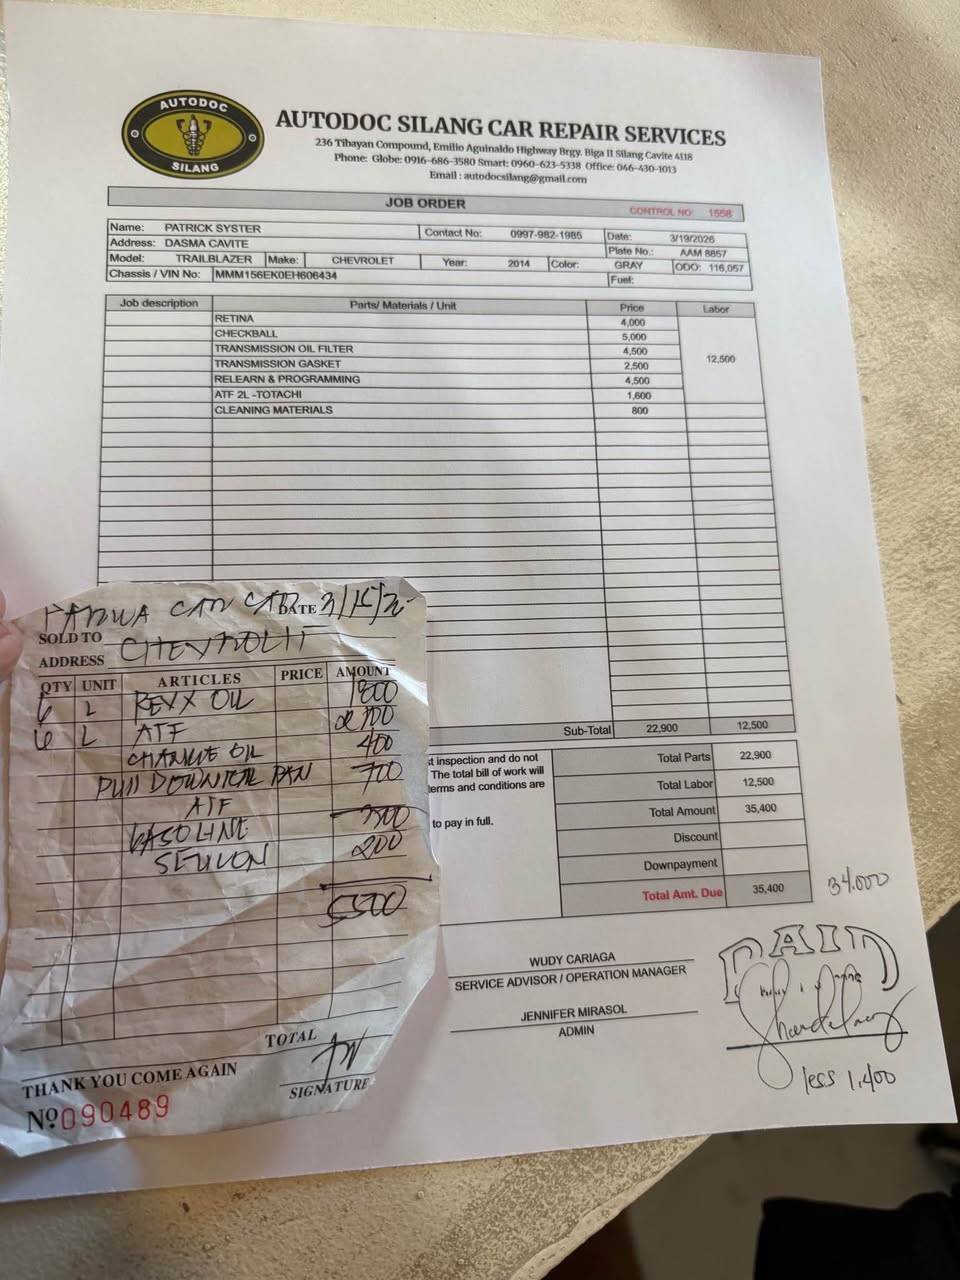 AUTODOC
SILANG
AUTODOC SILANG CAR REPAIR SERVICES
236 Tibayan Compound, Emilio Aguinaldo Highway Brgy. Biga II Silang Cavite 4118
Phone: Globe: 0916-686-3580 Smart: 0960-623-5338 Office: 046-430-1013
Email : autodocsilang@gmail.com
JOB ORDER CONTROL NO: 1558
Name: PATRICK SYSTER Contact No: 0997-982-1985 Date: 3/19/2026
Address: DASMA CAVITE Plate No.: AAM 8857
Model: TRAILBLAZER Make: CHEVROLET Year: 2014 Color: GRAY ODO: 116,057
Chassis / VIN No: MMM156EK0EH606434 Fuel:
Job description Parts/ Materials / Unit Price Labor
RETINA 4,000
CHECKBALL 5,000
TRANSMISSION OIL FILTER 4,500
12,500
TRANSMISSION GASKET 2,500
RELEARN & PROGRAMMING 4,500
ATF 2L -TOTACHI 1,600
CLEANING MATERIALS 800
Sub-Total 22,900 12,500
t inspection and do not
The total bill of work will
erms and conditions are
to pay in full.
Total Parts 22,900
Total Labor 12,500
Total Amount 35,400
Discount
Downpayment
Total Amt. Due 35,400
34,000
PAID
less 1,400
WUDY CARIAGA
SERVICE ADVISOR / OPERATION MANAGER
JENNIFER MIRASOL
ADMIN
CAR DATE
SOLD TO
ADDRESS
QTY UNIT ARTICLES PRICE AMOUNT
6 L REVX OIL 1800
6 L ATF 2100
CHANGE OIL 400
PULL DOWN OIL PAN 700
ATF
GASOLINE 300
200
5500
TOTAL
THANK YOU COME AGAIN
SIGNATURE
Nº 090489